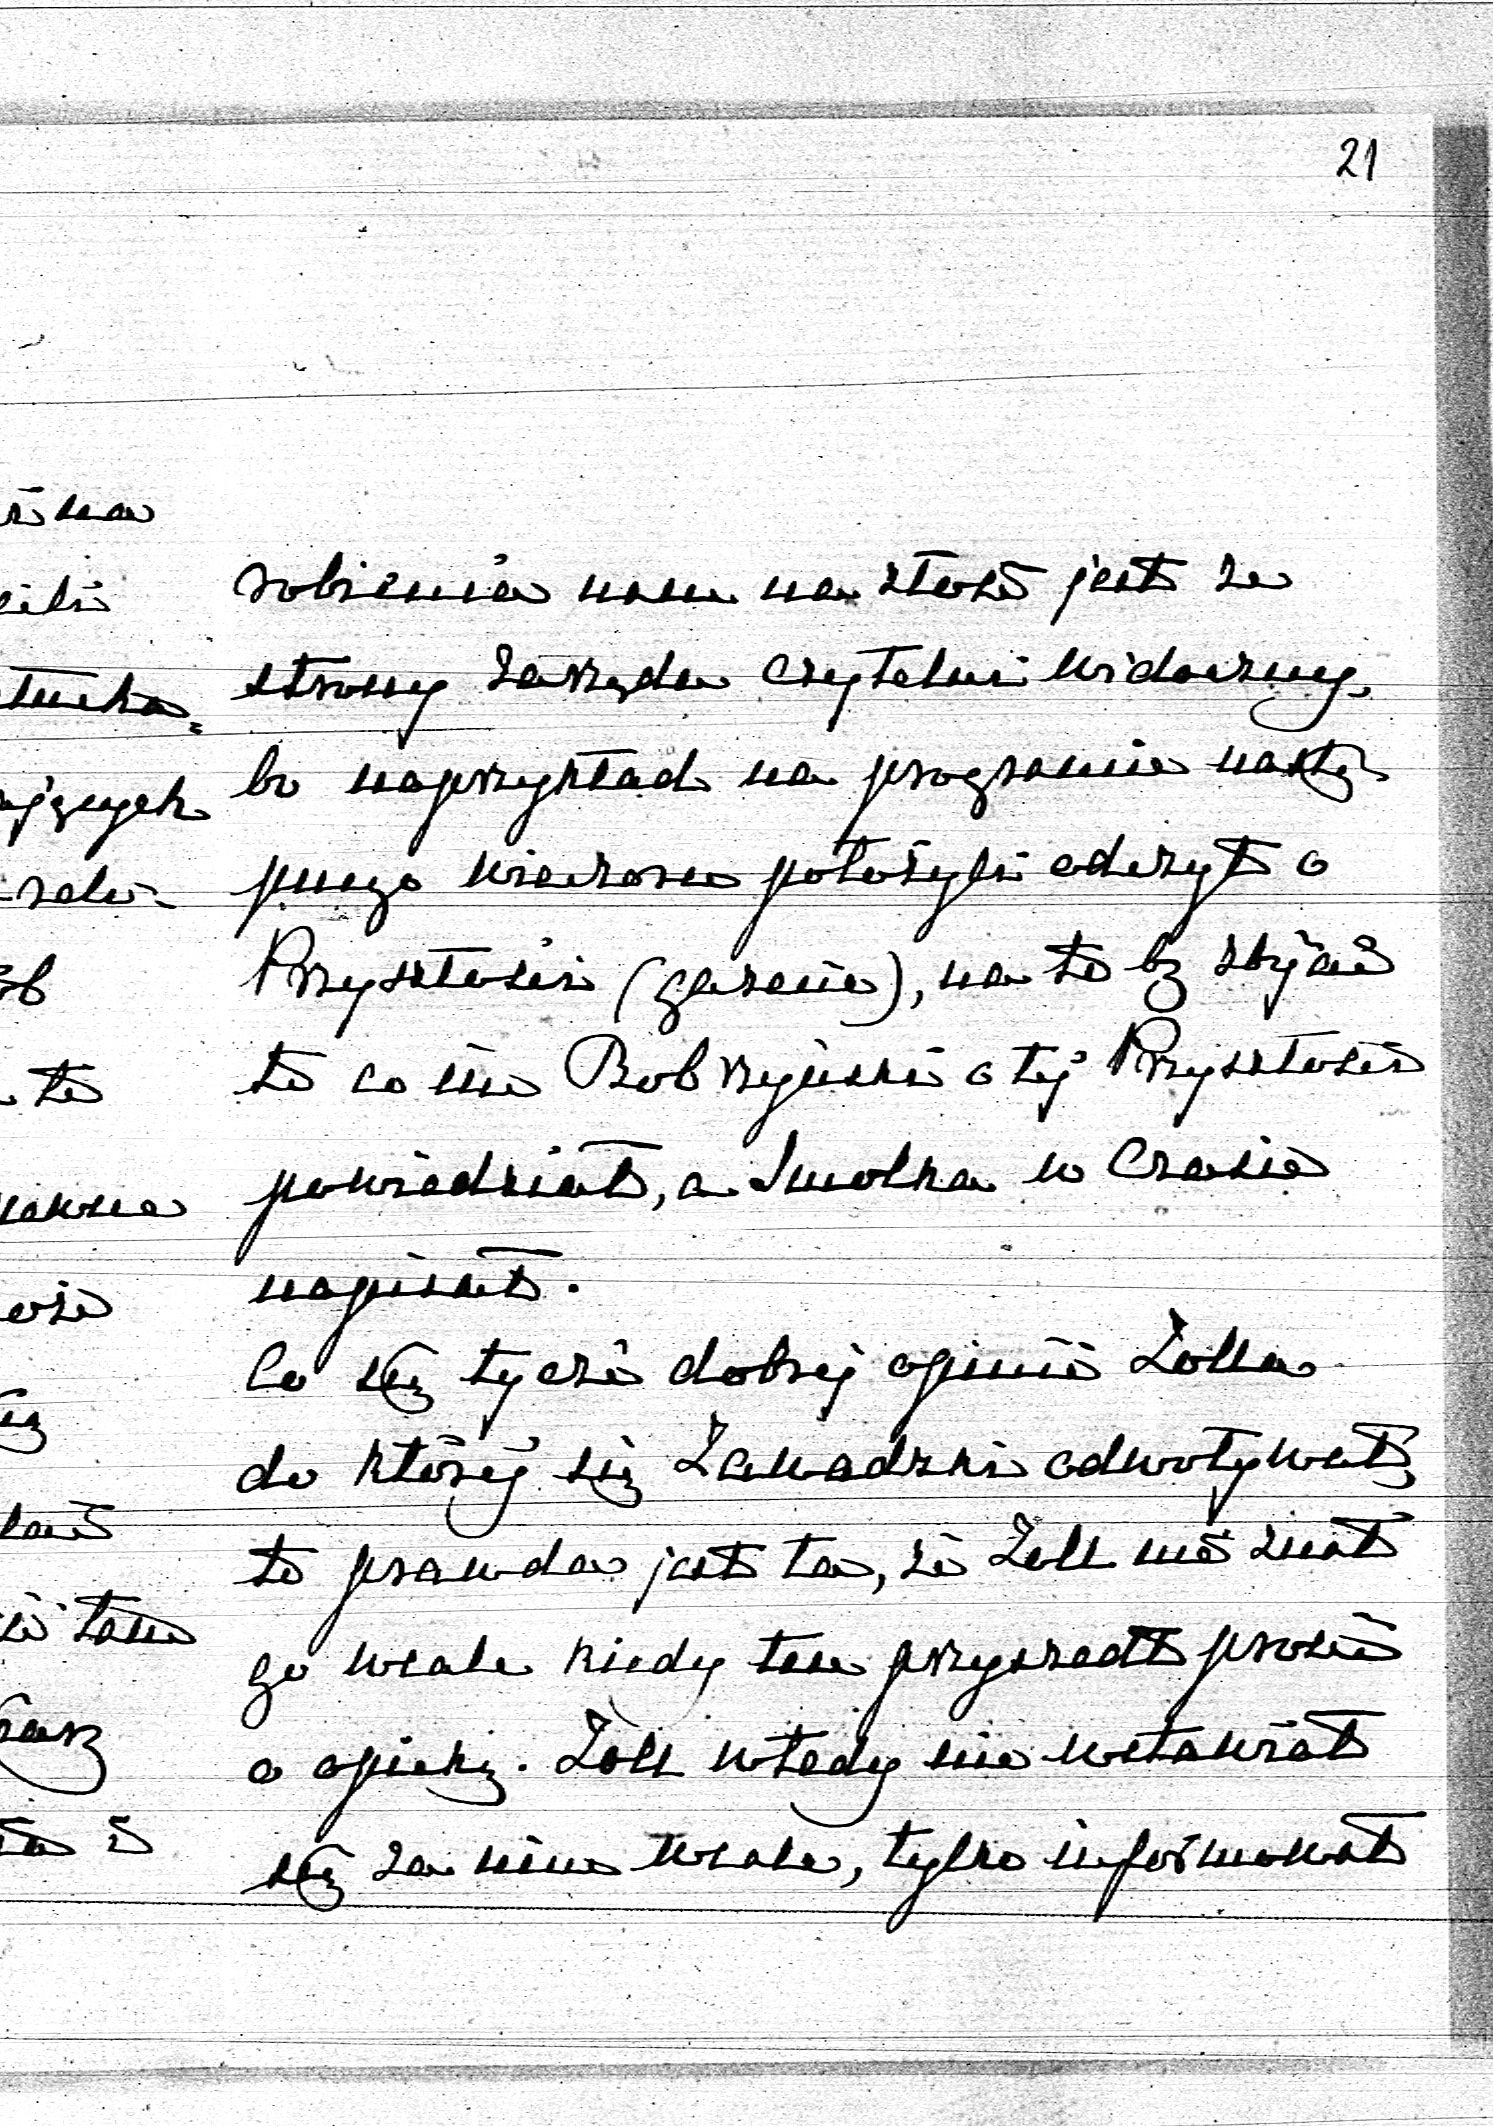 21
robienia nam na złość jest ze
strony Zarządu Czytelni widoczny,
bo naprzykład na programie nastę-
pnego wieczoru położyli odczyt o
Przyszłości (gazecie), na to by zbijać
to co im Bobrzyński o tej Przyszłości
powiedział, a Smolka w Czasie
napisał.
Co się tyczy dobrej opinii Zolla
do której się Zawadzki odwoływał,
to prawda jest ta, że Zoll nie znał
go wcale kiedy ten przyszedł prosić
o opiekę. Zoll wtedy nie wstawiał
się za nim wcale, tylko informował